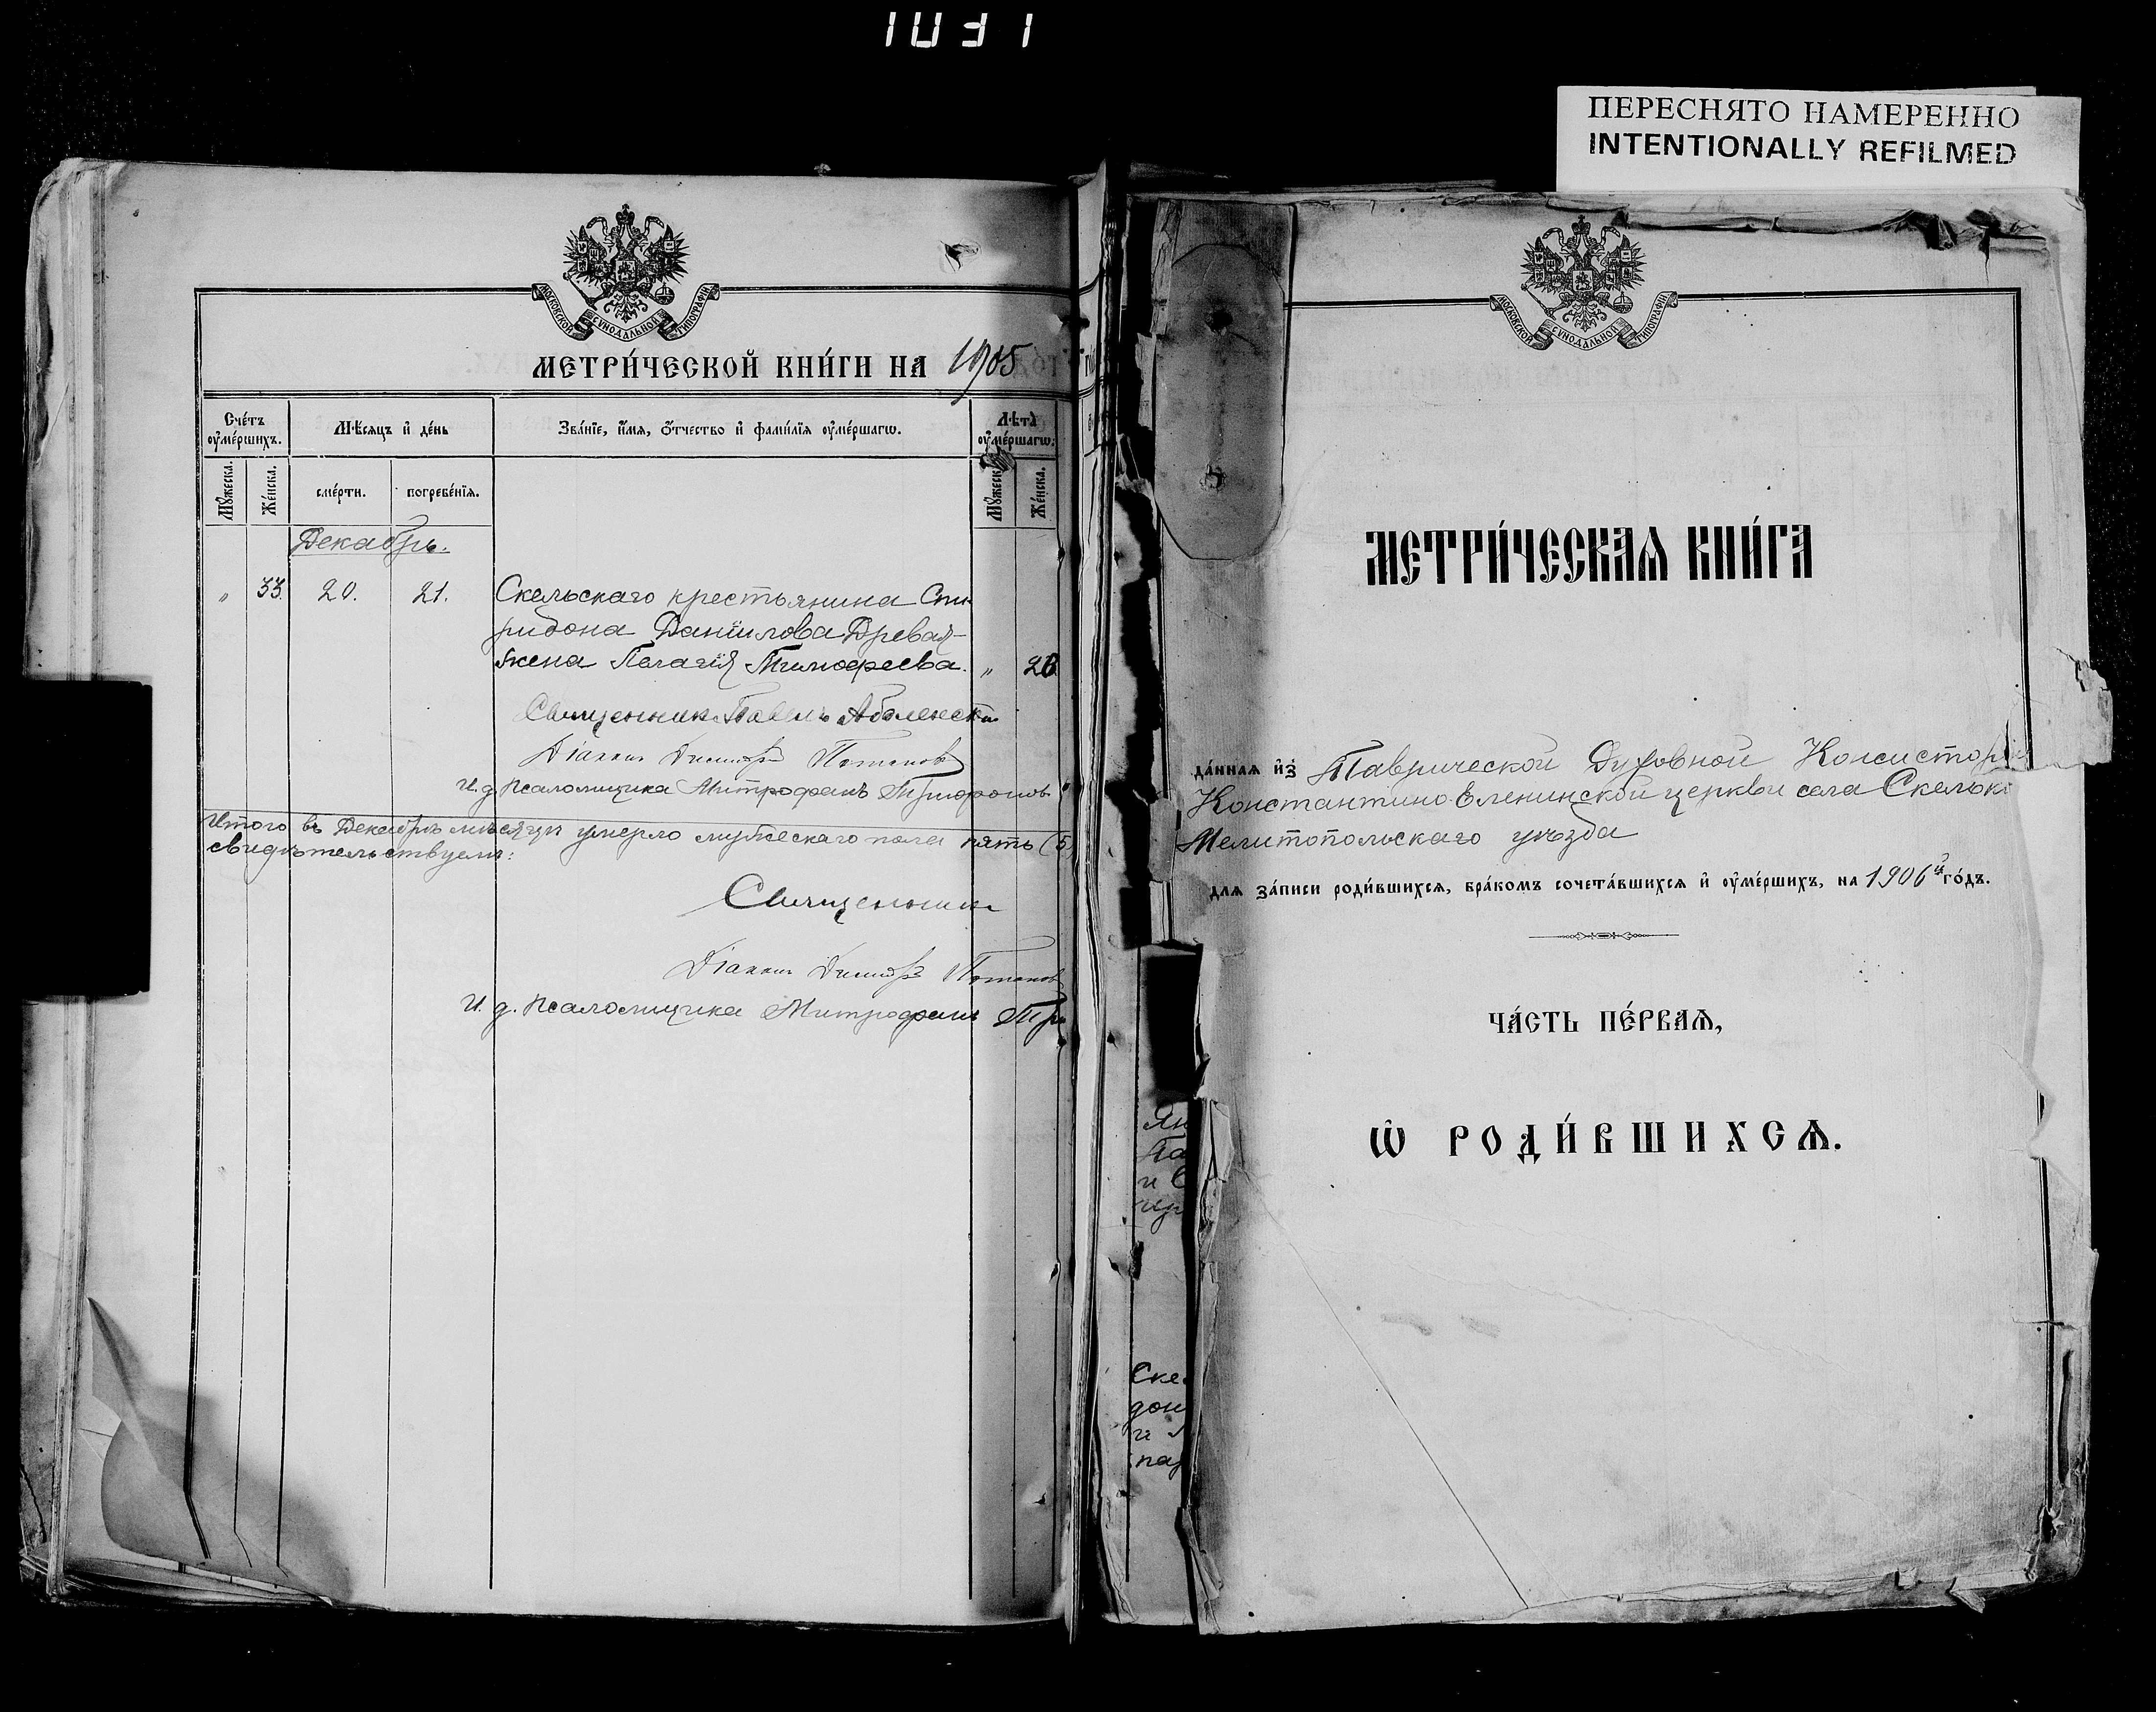 1031
ПЕРЕСНЯТО НАМЕРЕННО
INTENTIONALLY REFILMED
МОСКОВСКОЙ СѴНОДАЛЬНОЙ ТИПОГРАФІИ
МЕТРИ́ЧЕСКОЙ КНИ́ГИ НА 1905
Сче́тъ ᲂу҆ме́ршихъ.
Мѣ́сяцъ и҆ де́нь
Зва́нїе, и҆́мя, ѻ҆́тчество и҆ фами́лїя ᲂу҆ме́ршагѡ.
Лѣ́та ᲂу҆ме́ршагѡ.
Мꙋ́жеска.
Же́нска.
сме́рти.
погребе́нїя.
Мꙋ́жеск
Же́нска.
Декабрь.
„ 33. 20. 21. Скельскаго крестьянина Спи-
ридона Данїилова Древаля
жена Пелагїя Тимофеева. „ 26
Священникъ Павелъ
Дїаконъ Димитрї Потапов
И. д. Псаломщика Митрофанъ
Итого въ Декабрѣ мѣсяцѣ умерло мужескаго пола пять (5
свидѣтельствуемъ:
Священник
Дїаконъ Димитрї Потапов
И. д. Псаломщика Митрофанъ
Ян
Па
и С
Ске
дон
па
МОСКОВСКОЙ СѴНОДАЛЬНОЙ ТИПОГРАФІИ
МЕТРИ́ЧЕСКАѦ КНИ́ГА
да́нная и҆з̾ Таврической Духовной Консисторіи
Константино-Еленинской церкви села Скельки
Мелитопольскаго уѣзда
для за́писи роди́вшихся, бра́комъ сочета́вшихся и҆ ᲂу҆ме́ршихъ, на 1906й го́дъ.
ЧА́СТЬ ПЕ́РВАѦ,
Ѽ РОДИ́ВШИХСѦ.